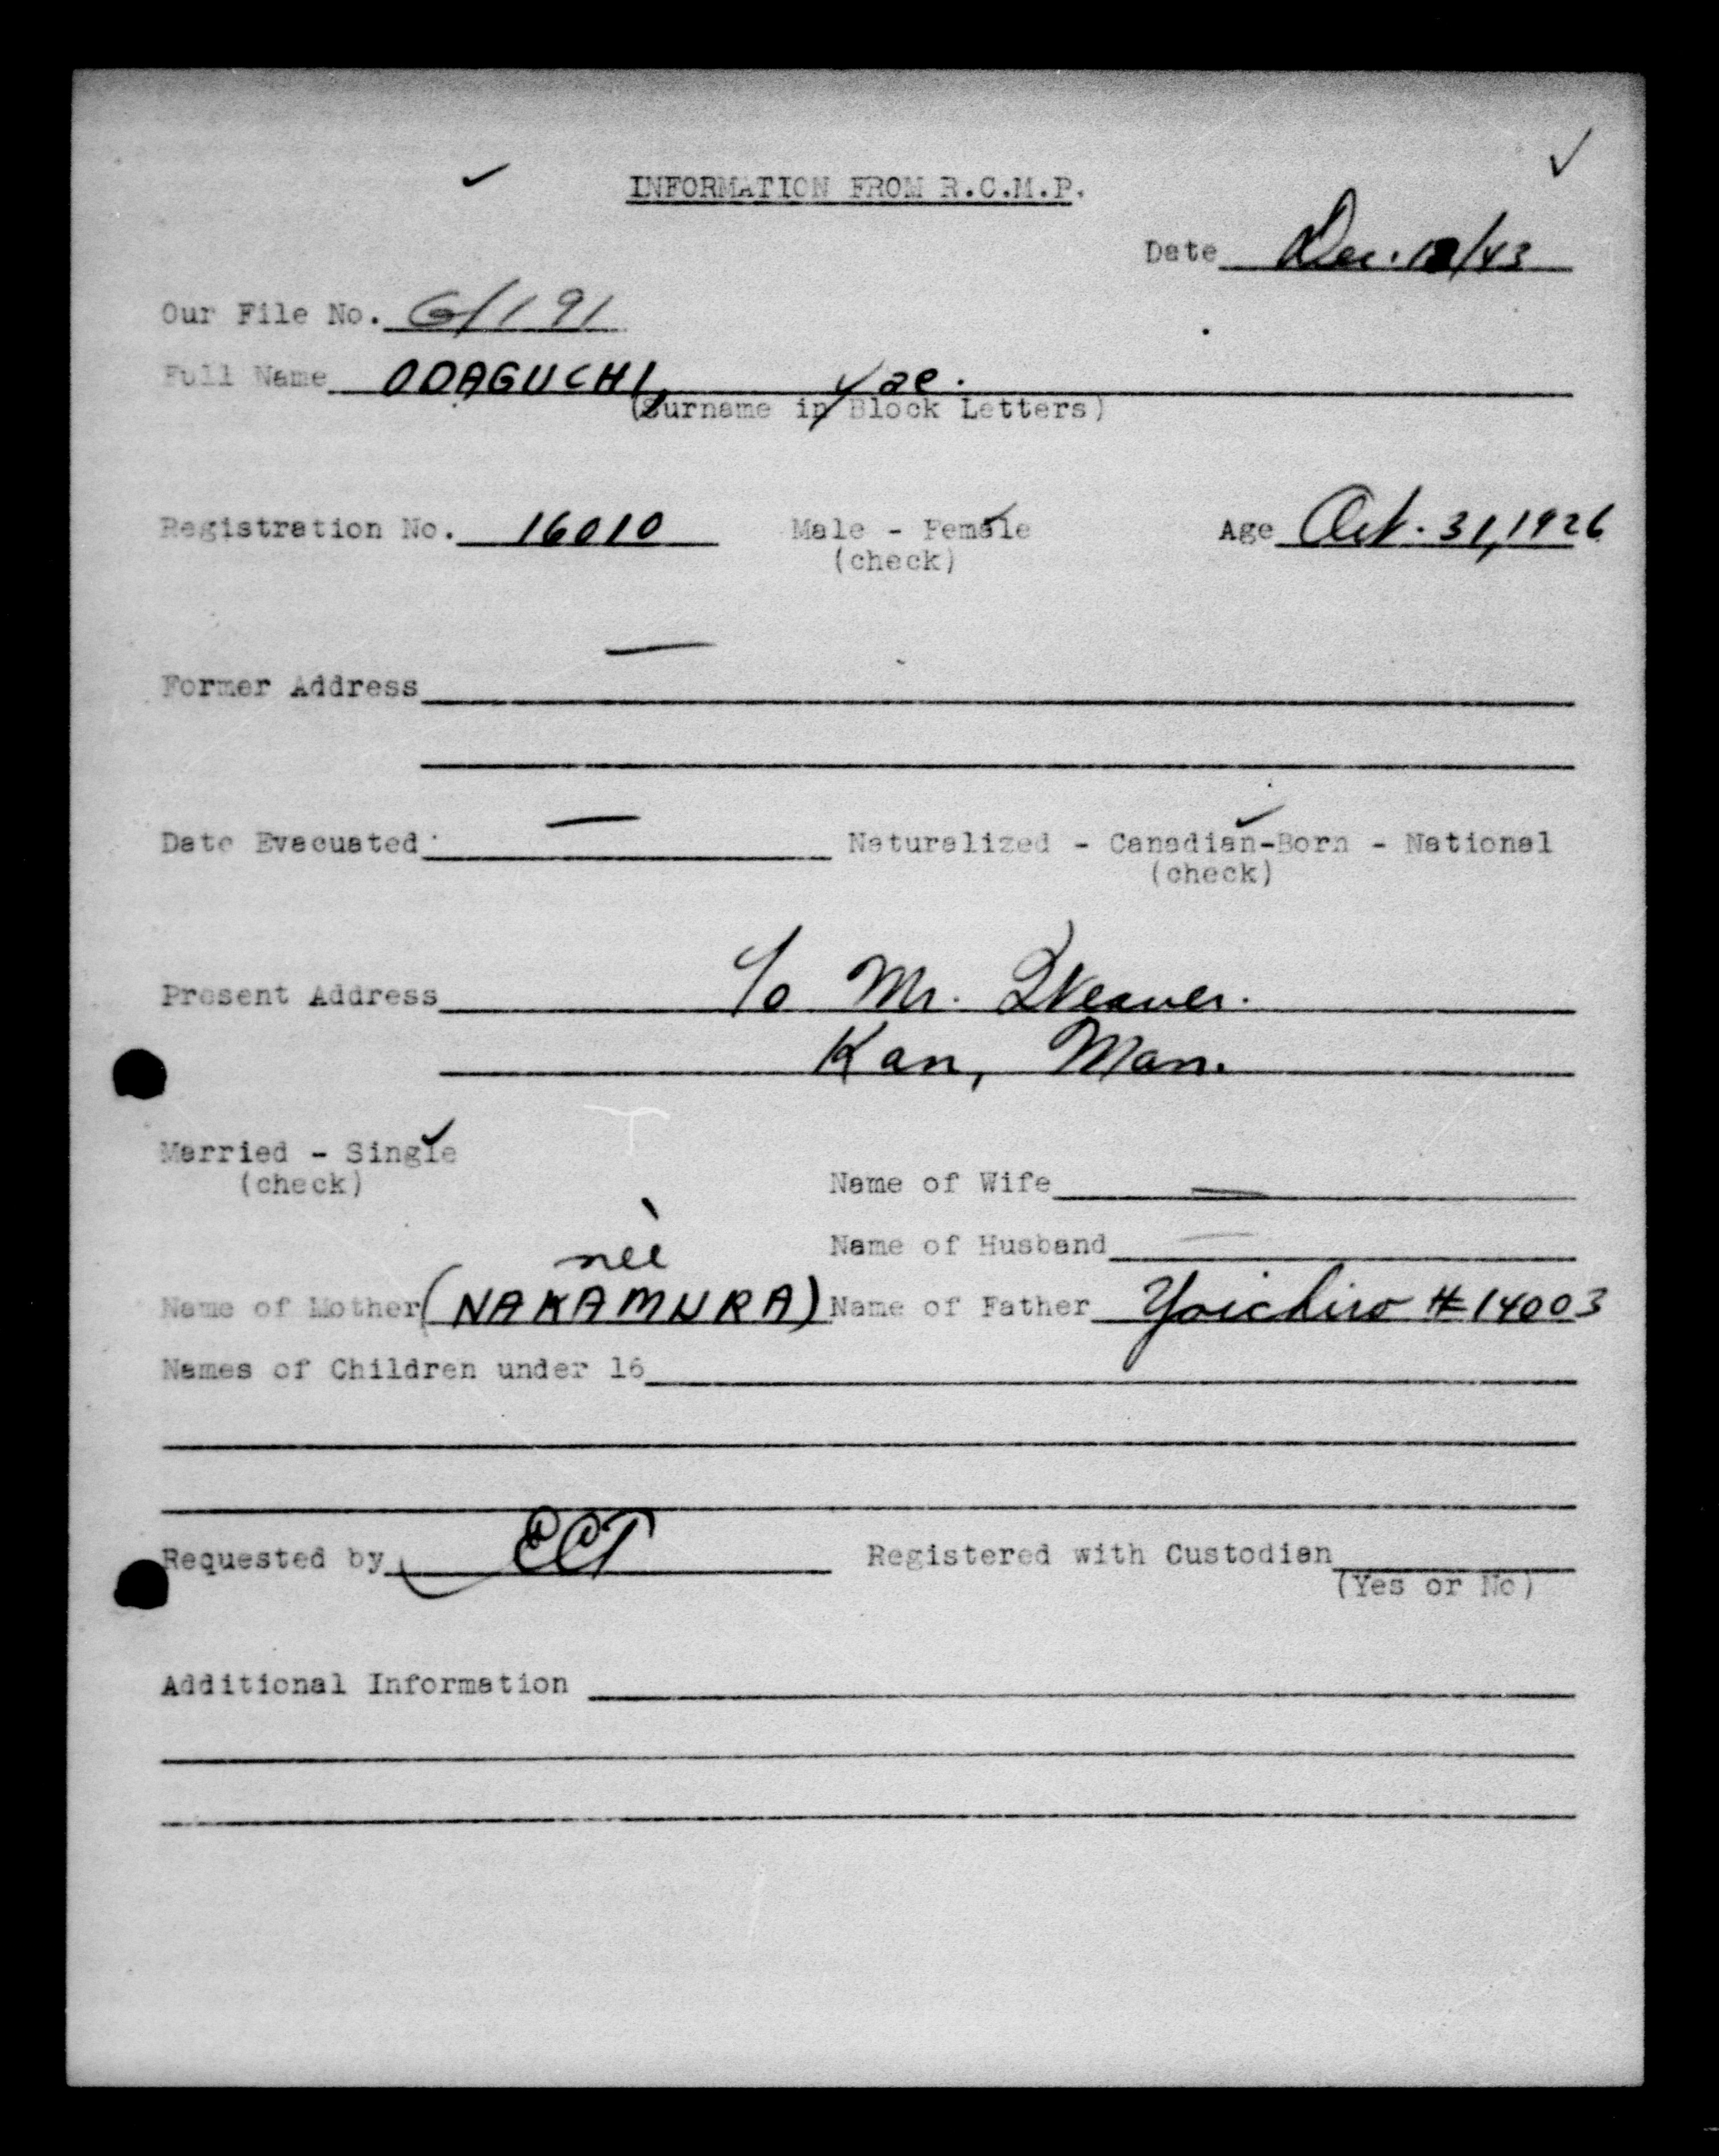 INFORMATION FROM R.C.M.P.
Date Dec. /43
Our File No. G/191
Full Name ODAGUCHI, Yae.
(Surname in Block Letters)
Registration No. 16010 Male - Female Age Oct. 31, 1926
(check)
Former Address —
Date Evacuated — Naturalized - Canadian-Born - National
(check)
Present Address c/o Mr. Weaver.
Kan, Man.
Married - Single
(check)
Name of Wife —
neé
Name of Husband —
Name of Mother (NAKAMURA) Name of Father Yoichiro #14003
Names of Children under 16
Requested by ECT Registered with Custodian
(Yes or No)
Additional Information